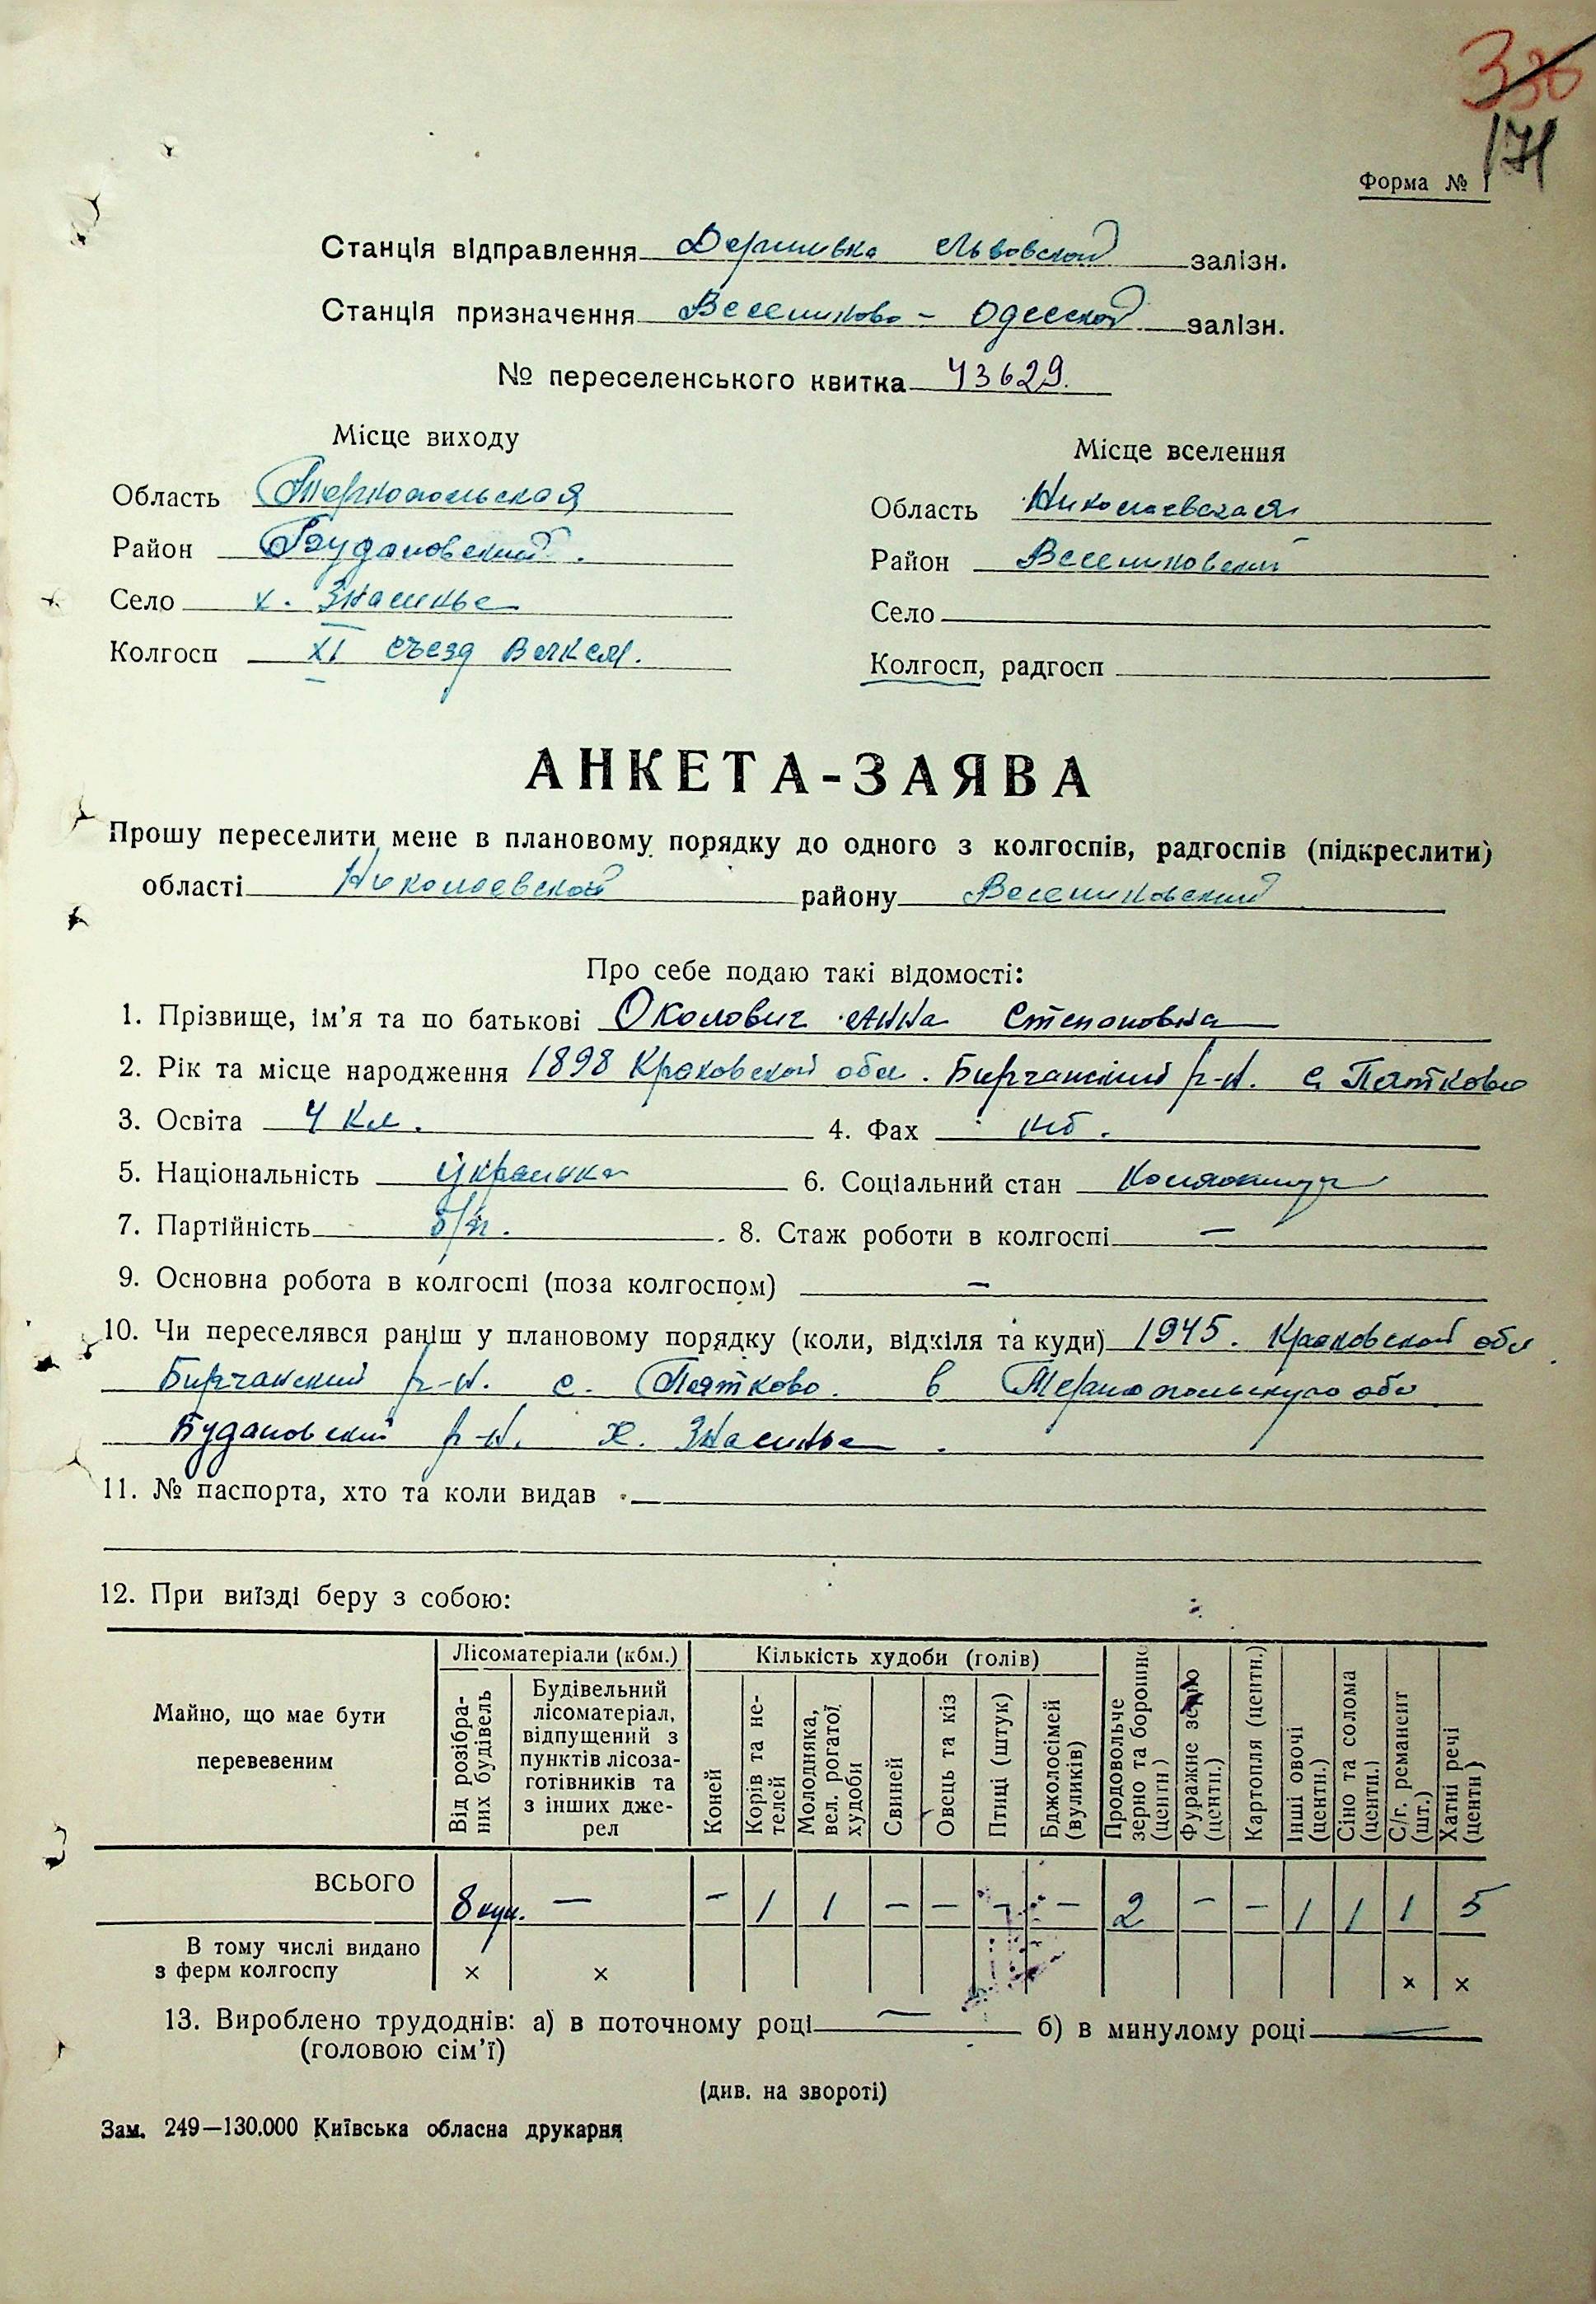 336
171
Форма № 1
Станція відправлення Деримивка Львовской залізн.
Станція призначення Веселиново - Одесской залізн.
№ переселенського квитка 43629.
Місце виходу
Місце вселення
Область Тернопольская
Область Николаевская
Район Будановский.
Район Веселиновский
Село х. Знасилье
Село
Колгосп XI съезд Влксм.
Колгосп, радгосп
АНКЕТА-ЗАЯВА
Прошу переселити мене в плановому порядку до одного з колгоспів, радгоспів (підкреслити)
області Николаевской району Веселиновский
Про себе подаю такі відомості:
1. Прізвище, ім'я та по батькові Околович Анна Степановна
2. Рік та місце народження 1898 Краковской обл. Бирчанский р-н. с. Пятково
3. Освіта 4 кл. 4. Фах н/б.
5. Національність Украинка 6. Соціальний стан
7. Партійність б/п. 8. Стаж роботи в колгоспі —
9. Основна робота в колгоспі (поза колгоспом) —
10. Чи переселявся раніш у плановому порядку (коли, відкіля та куди) 1945. Краковской обл
Бирчанский р-н. с. Пятково. в Тернопольскую обл
Будановский р-н. х. Знасилье.
11. № паспорта, хто та коли видав
12. При виїзді беру з собою:
Майно, що має бути перевезеним
Лісоматеріали (кбм.)
Кількість худоби (голів)
Від розібраних будівель
Будівельний лісоматеріал, відпущений з пунктів лісозаготівників та з інших джерел
Коней
Корів та нетелей
Молодняка, вел. рогатої худоби
Свиней
Овець та кіз
Птиці (штук)
Бджолосімей (вуликів)
Продовольче зерно та борошно (центн)
Фуражне зерно (центн.)
Картопля (центн.)
Інші овочі (центн.)
Сіно та солома (центн.)
С/г. реманент (шт.)
Хатні речі (центн)
ВСЬОГО 8 куп. — — 1 1 — — — — 2 — — 1 1 1 5
В тому числі видано з ферм колгоспу × × × ×
13. Вироблено трудоднів: а) в поточному році — б) в минулому році —
(головою сім'ї)
(див. на звороті)
Зам. 249—130.000 Київська обласна друкарня